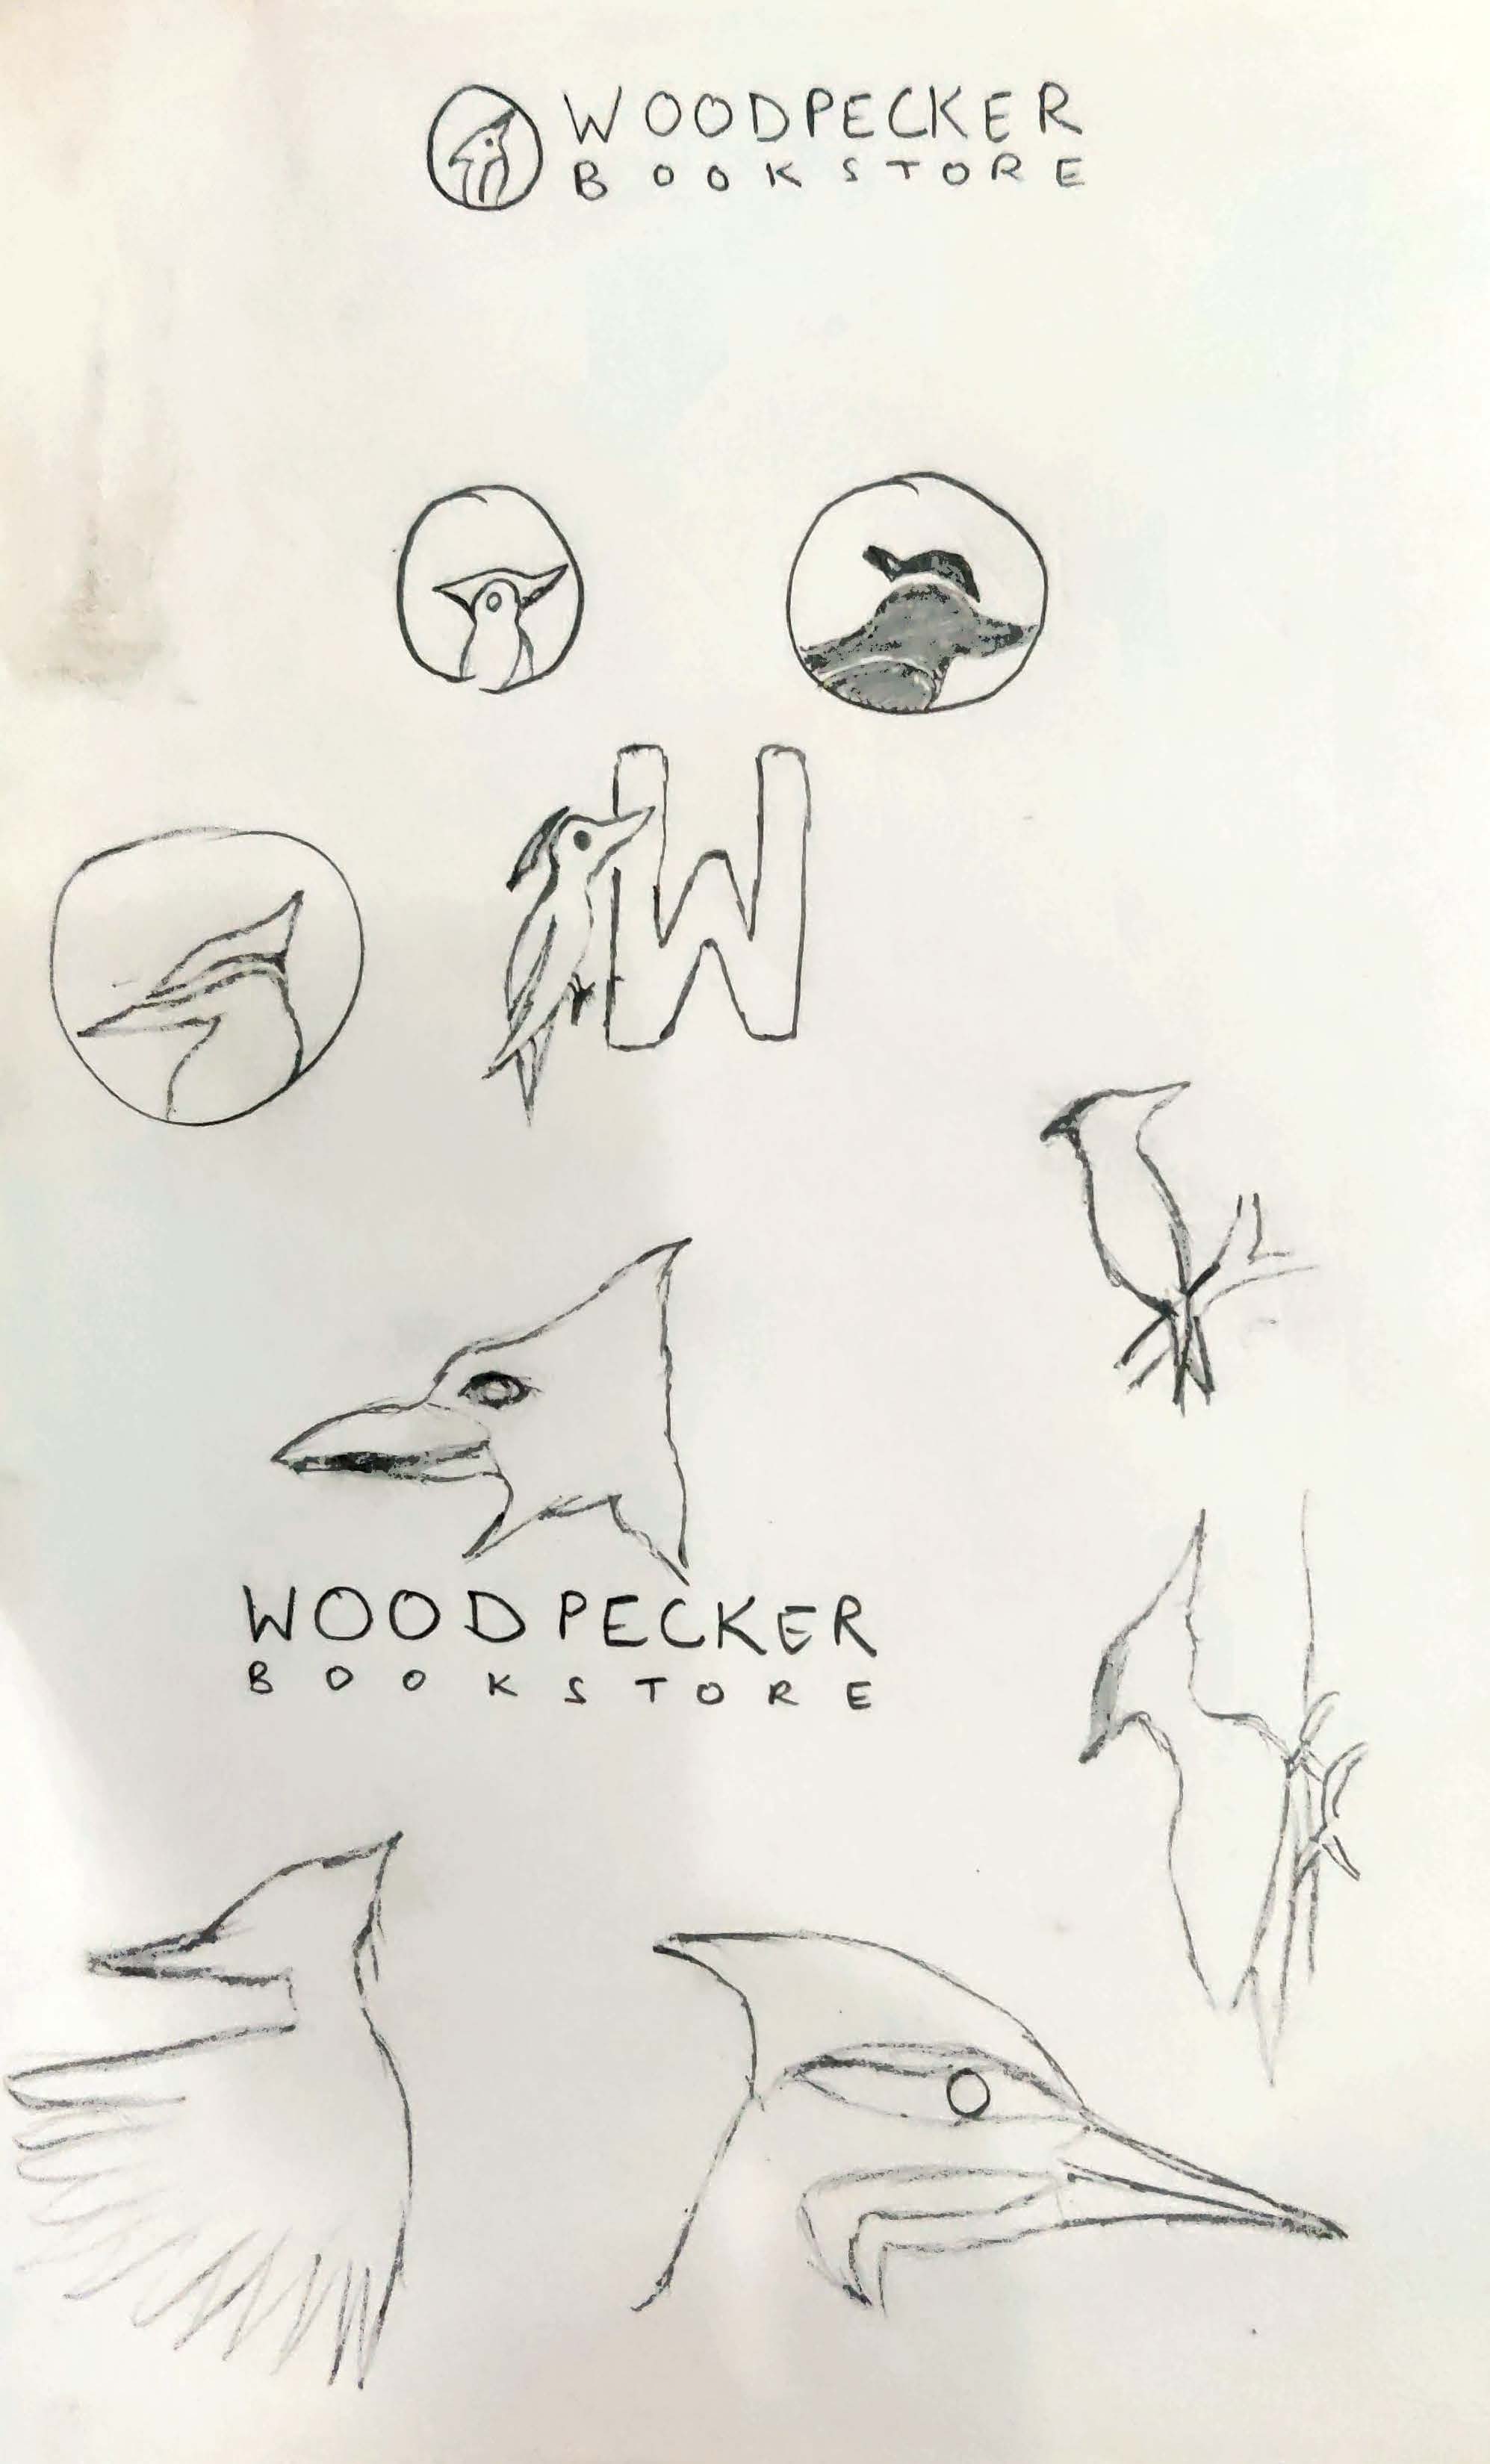 WOODPECKER
BOOKSTORE
W
WOODPECKER
BOOKSTORE